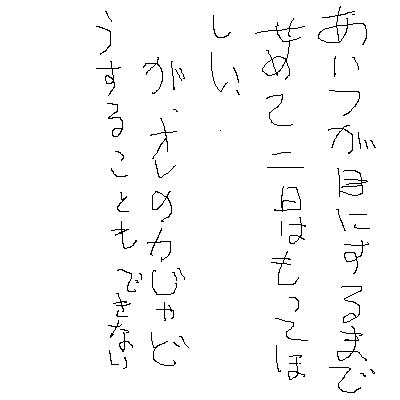 あいつが目にするまで
せめて二日はもってほ
しい、
が、オレの力じゃど
うすることもできない